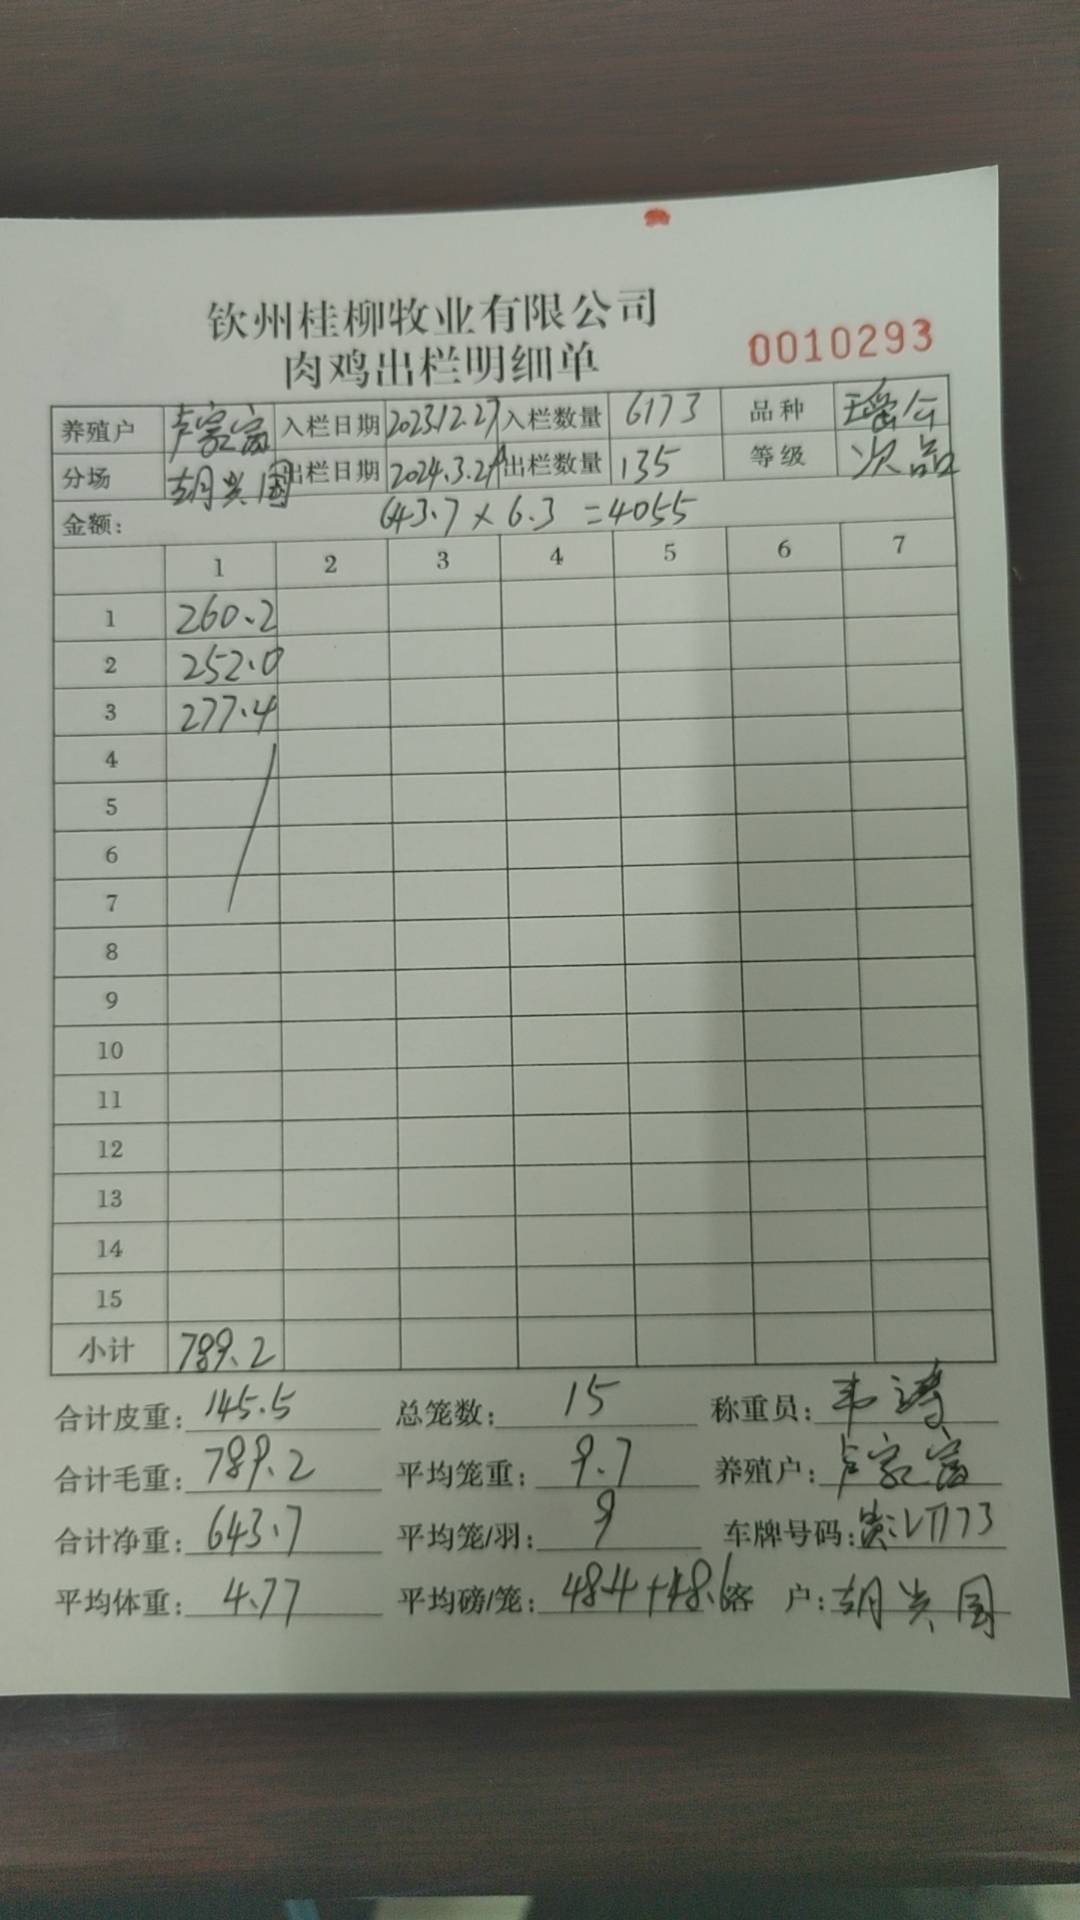 钦州桂柳牧业有限公司
肉鸡出栏明细单
0010293
养殖户 卢家富 入栏日期 2023.12.27 入栏数量 6173 品种 瑶公
分场 胡兴国 出栏日期 2024.3.29 出栏数量 135 等级 次品
金额: 643.7×6.3=4055
1 2 3 4 5 6 7
1 260.2
2 252.0
3 277.4
4
5
6
7
8
9
10
11
12
13
14
15
小计 789.2
合计皮重: 145.5 总笼数: 15 称重员: 韦涛
合计毛重: 789.2 平均笼重: 9.7 养殖户: 卢家富
合计净重: 643.7 平均笼/羽: 9 车牌号码:
平均体重: 4.77 平均磅/笼: 48.4+48.6 客 户: 胡兴国